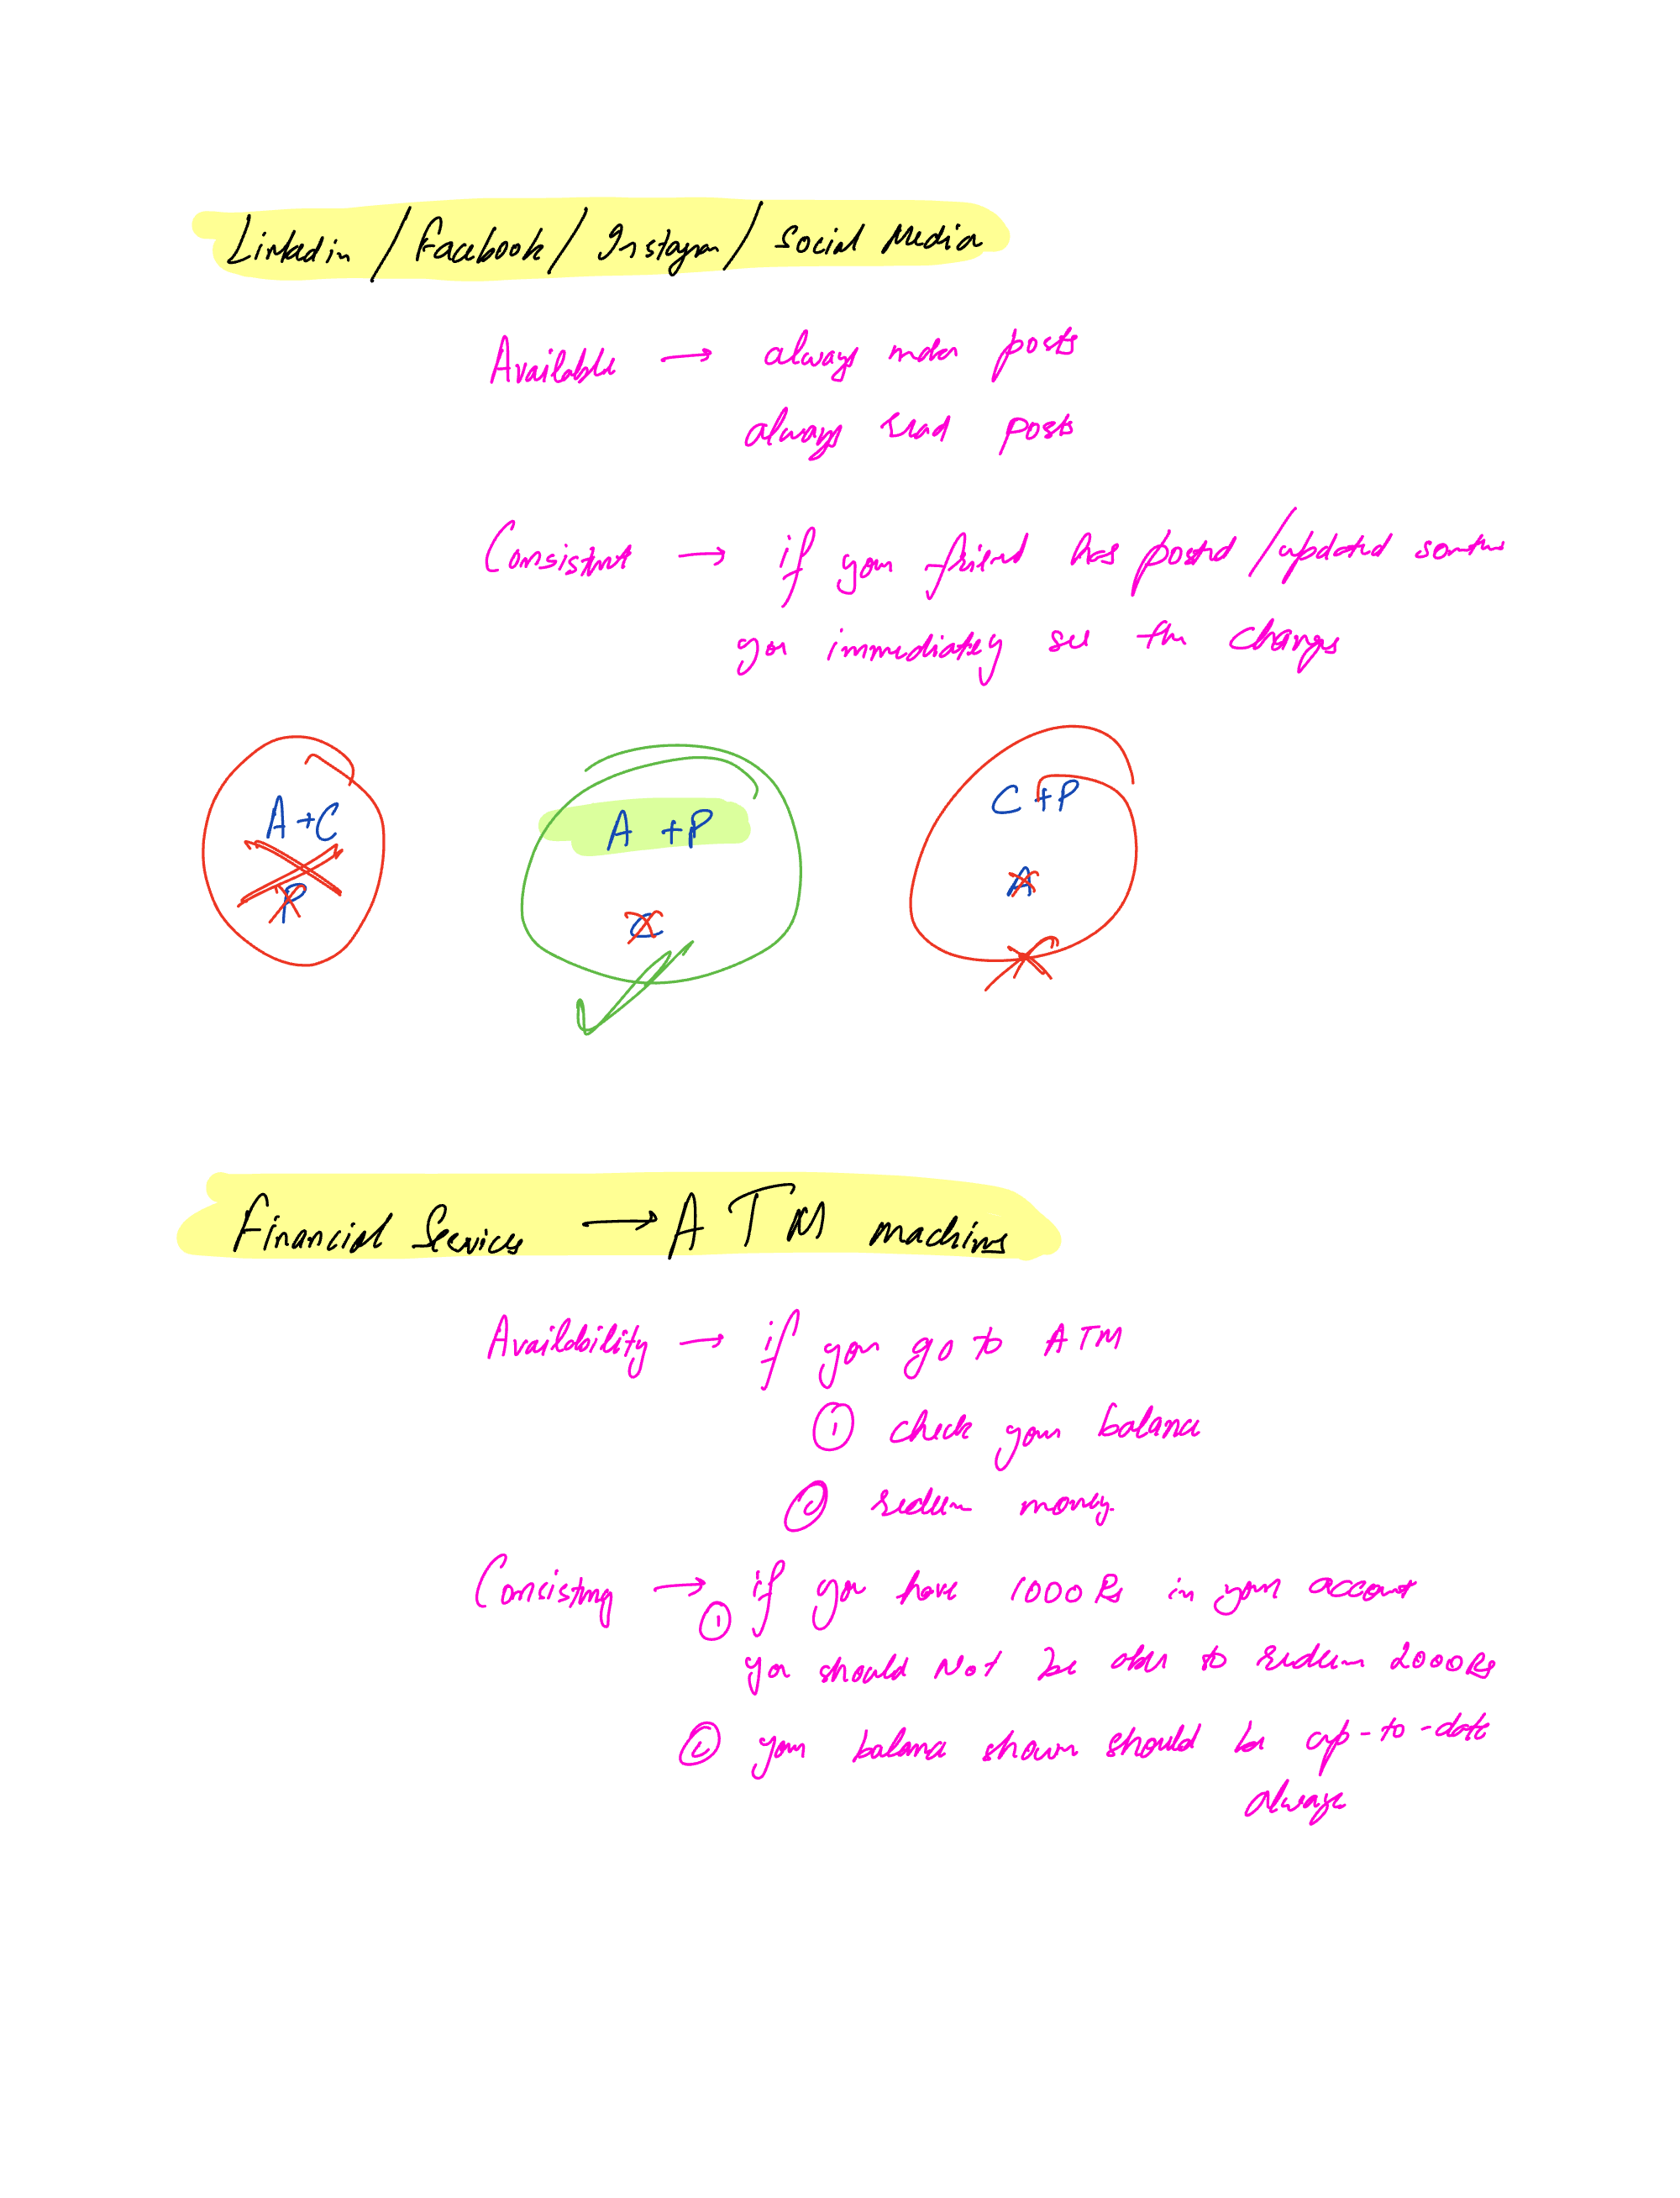 Linkedin / Facebook / Instagram / Social Media
Available → always make posts
always read posts
Consistent → if your friend has posted / updated
you immediately see the changes
A + C
P
A + P
C
C + P
A
Financial Services → ATM machines
Availability → if you go to ATM
① check your balance
② redeem money
Consistency → ① if you have 1000 Rs in your account
you should Not be able to redeem 2000 Rs
② your balance shown should be up-to-date
always